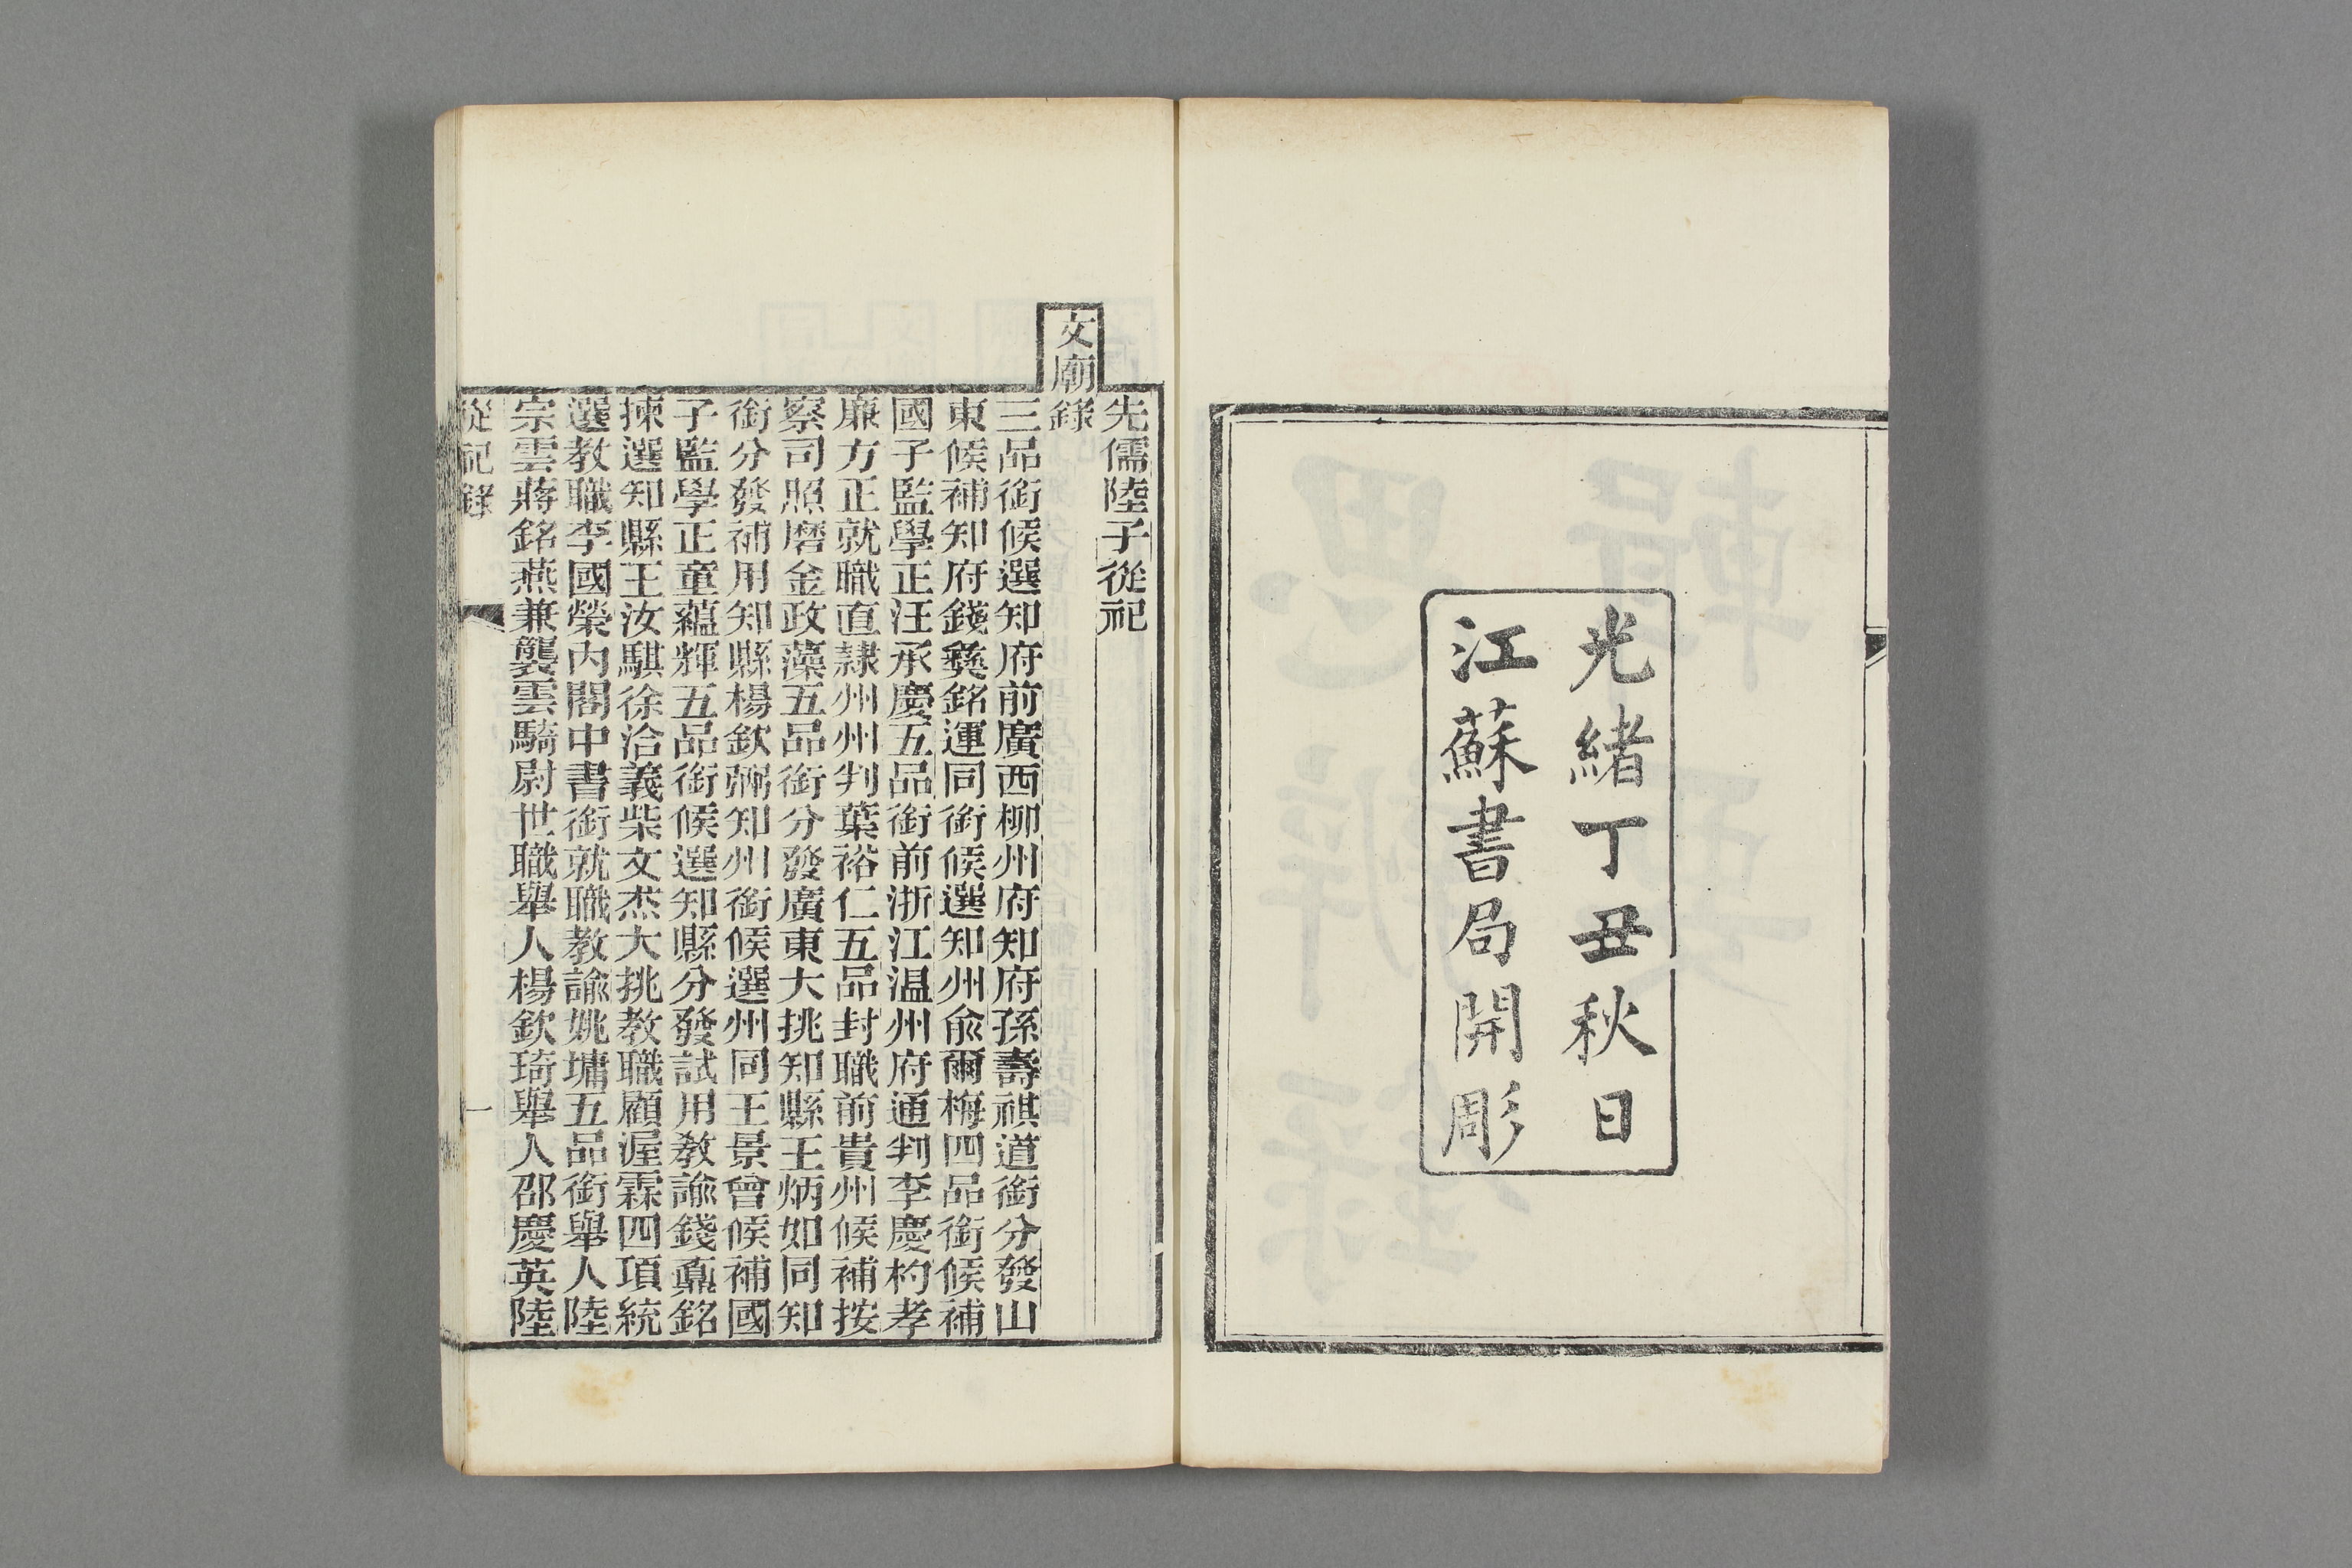 光緒丁丑秋日
江蘇書局開彫
先儒陸子從祀
文廟錄
三品銜候選知府前廣西柳州府知府孫壽祺道銜分發山
東候補知府錢彝銘運同銜候選知州俞爾梅四品銜候補
國子監學正汪承慶五品銜前浙江温州府通判李慶杓孝
廉方正就職直隸州州判葉裕仁五品封職前貴州候補按
察司照磨金政藻五品銜分發廣東大挑知縣王炳如同知
銜分發補用知縣楊欽弼知州銜候選州同王景曾候補國
子監學正童蘊輝五品銜候選知縣分發試用教諭錢鼐銘
揀選知縣王汝騏徐洽義柴文杰大挑教職顧渥霖四項統
選教職李國榮內閣中書銜就職教諭姚墉五品銜舉人陸
宗雲蔣銘燕兼襲雲騎尉世職舉人楊欽琦舉人邵慶英陸
從祀錄
一